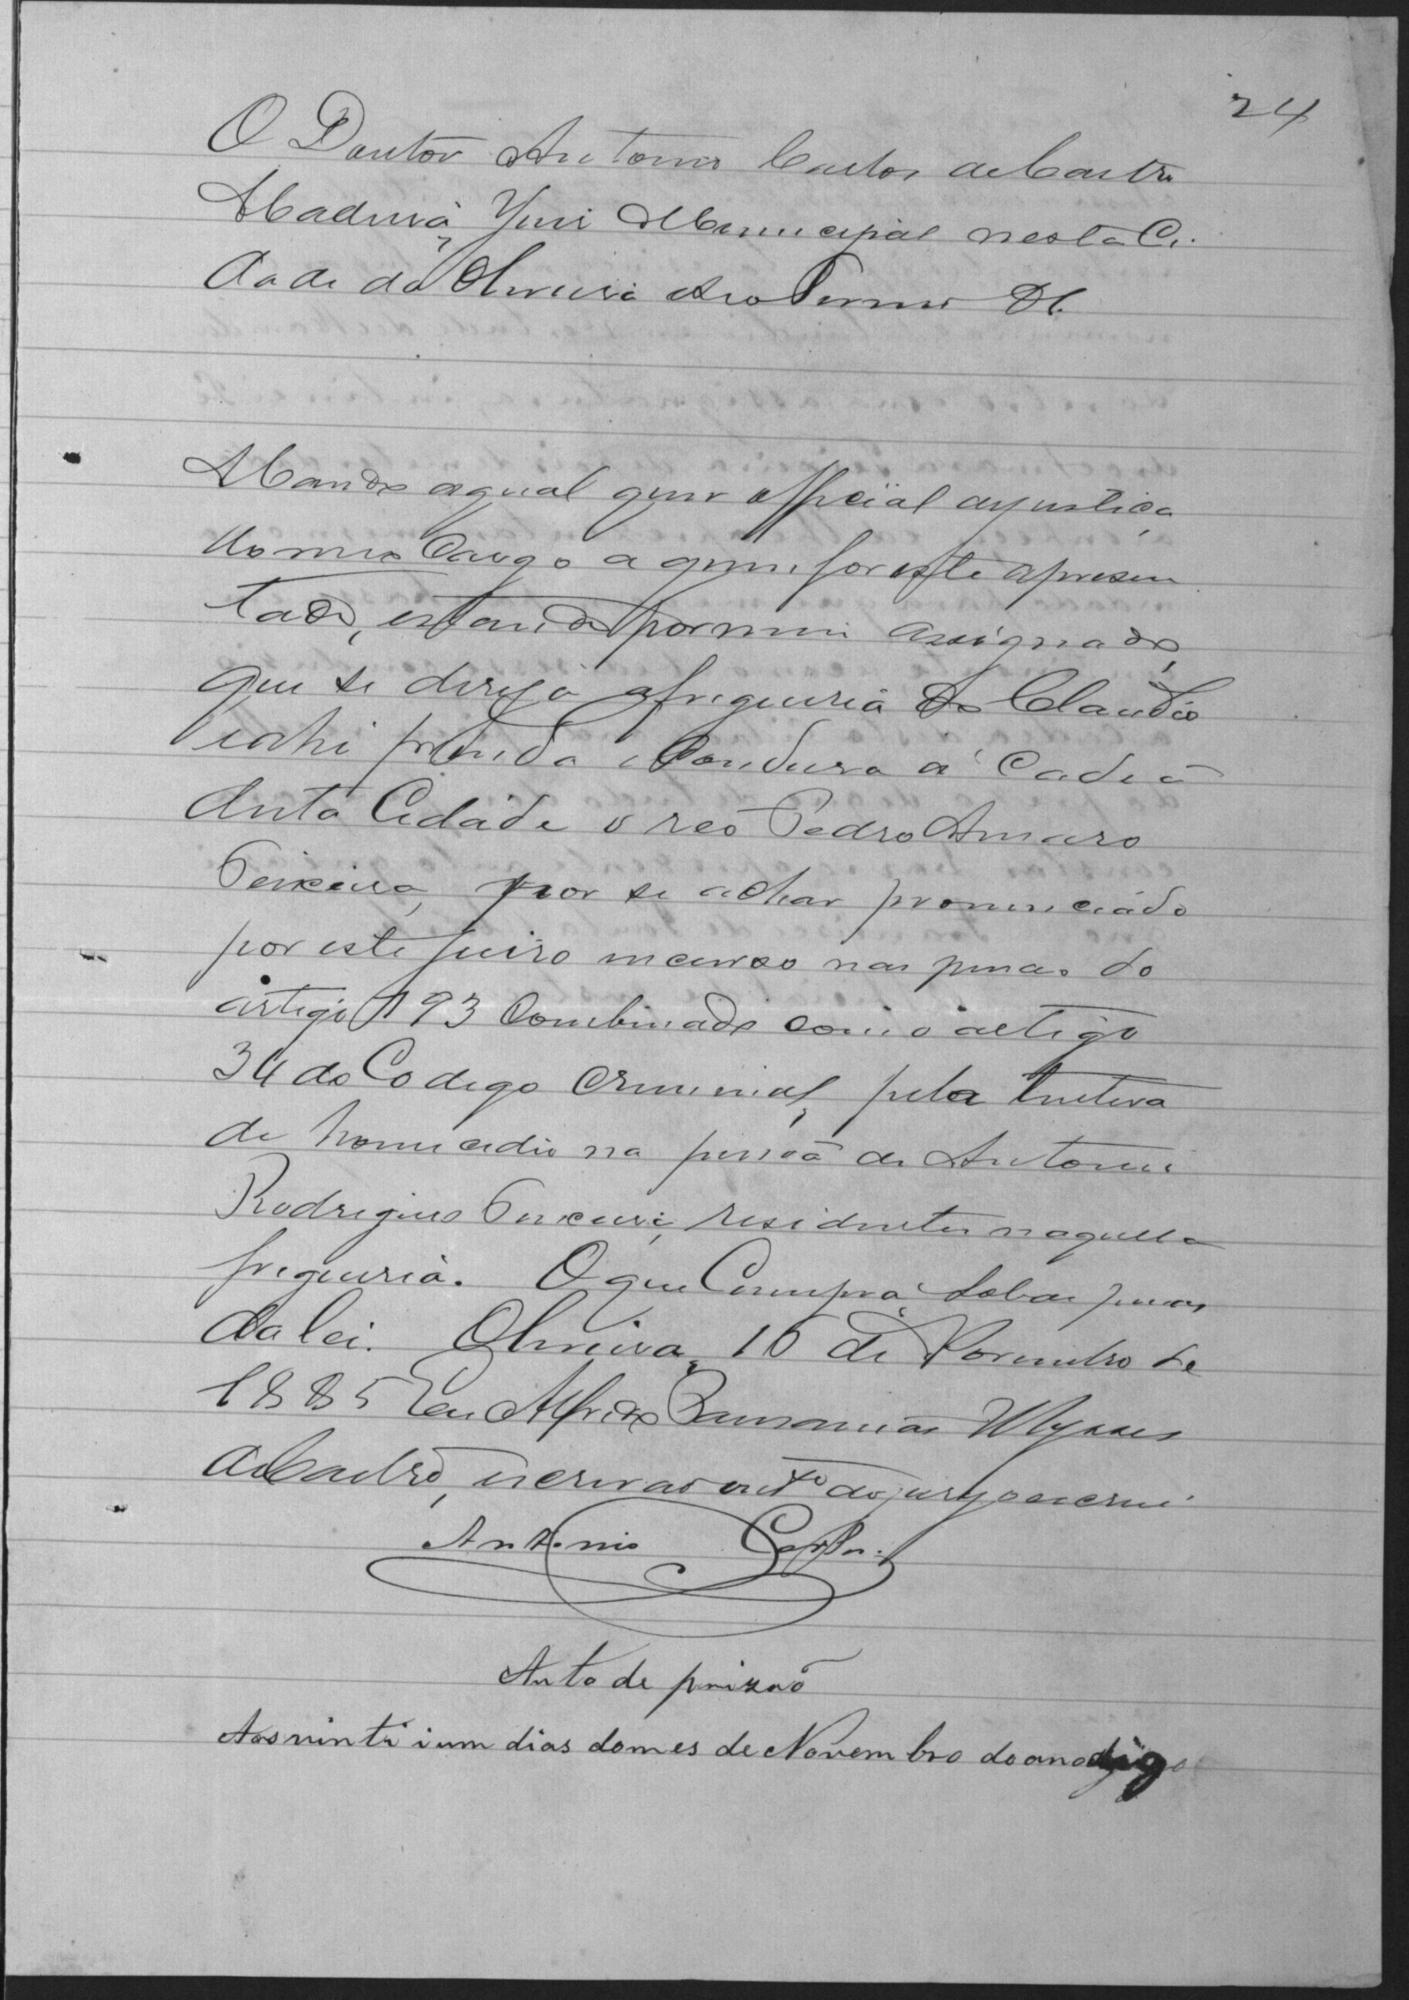 24
O Doutor Antonio Carlos de Castro
Madurã, Juiz Municipal nesta Ci-
dade da Oliveira e seo Termo &.
Mando aqual quer official de justiça
do meo Cargo a quem for este apresen
tado, estando por mim assignado,
que se dirija a freguesia do Claudio
e ahi prenda e Condusa a Cadea
desta Cidade o reo Pedro Amaro
Teixeira, por se achar pronunciado
por este juiso incurso nas penas do
artigo 193 Combinado com o artigo
34 do Codigo Criminal, pela tentiva
de homicidio na pessoa de Antonio
Rodrigues Teixeira, residentes naquella
freguesia. O que Cumpra, sob as penas
da lei. Oliveira, 16 de Novembro de
1885 Eu Alfredo Ulysses
de Castro, escrivao intº do jury o escrevi
Antonio Castro
Auto de prizão
Aos vinti i um dias do mes de Novembro do ano digo